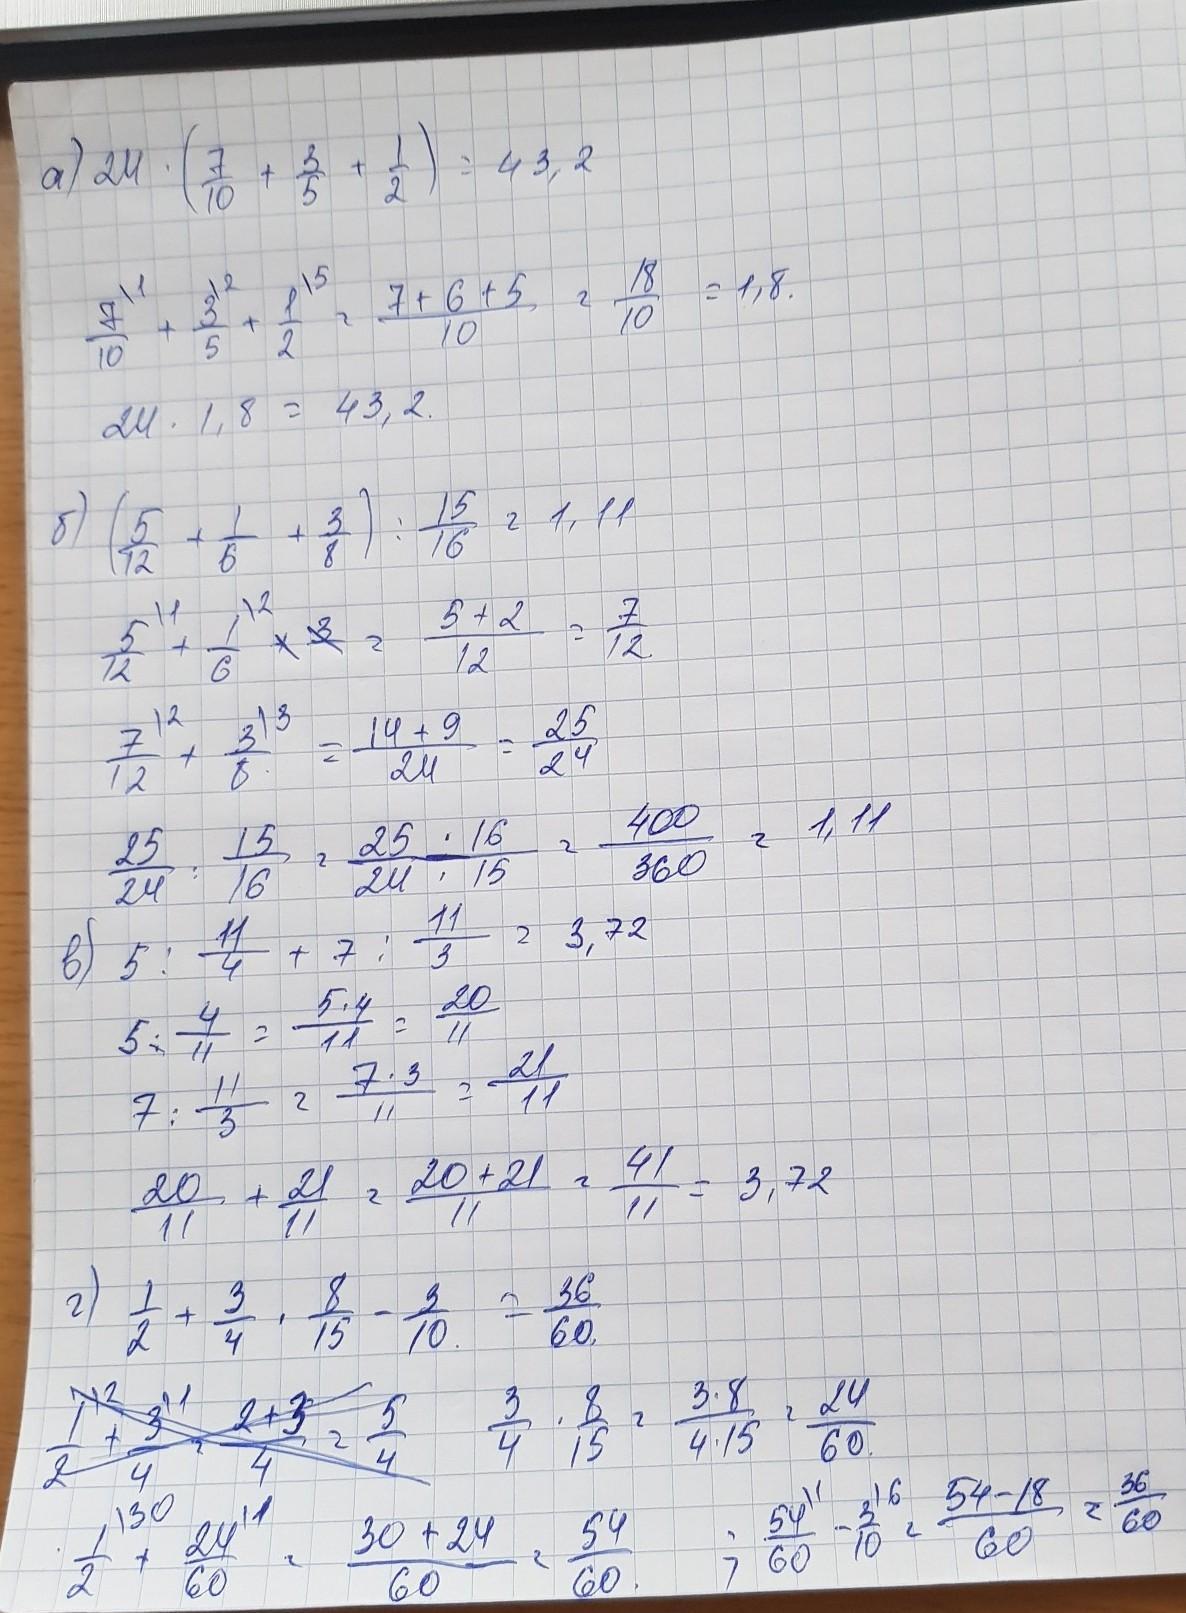 а) 24 · (7/10 + 3/5 + 1/2) = 43,2
7/10\1 + 3/5\2 + 1/2\5 = (7 + 6 + 5)/10 = 18/10 = 1,8.
24 · 1,8 = 43,2.
б) (5/12 + 1/6 + 3/8) : 15/16 = 1,11
5/12\1 + 1/6\2 = (5 + 2)/12 = 7/12
7/12\2 + 3/8\3 = (14 + 9)/24 = 25/24
25/24 : 15/16 = (25 · 16)/(24 · 15) = 400/360 = 1,11
в) 5 : 11/4 + 7 : 11/3 = 3,72
5 : 4/11 = (5·4)/11 = 20/11
7 : 11/3 = (7·3)/11 = 21/11
20/11 + 21/11 = (20+21)/11 = 41/11 = 3,72
г) 1/2 + 3/4 · 8/15 - 3/10 = 36/60
1/2\2 + 3/4\1 = (2+3)/4 = 5/4 3/4 · 8/15 = (3·8)/(4·15) = 24/60
1/2\30 + 24/60\1 = (30 + 24)/60 = 54/60 ; 54/60\1 - 3/10\6 = (54-18)/60 = 36/60